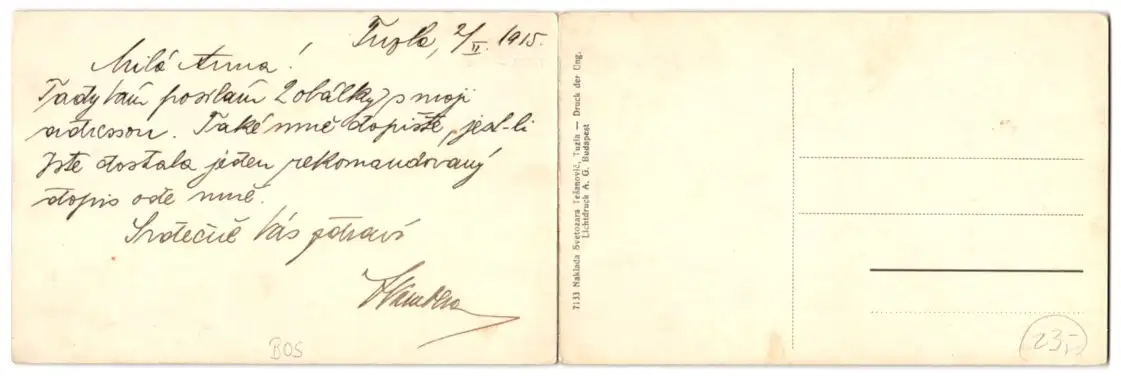 Tuzla, 2/II. 1915.
Milá Anna!
Tady Vám posílám 2 obálky s moji
adressou. Také mně dopište, jest-li
jste dostala jeden rekomandovaný
dopis ode mně.
Srdečně Vás zdraví
BOS
7133 Naklada Svetozara Tešanović, Tuzla — Druck der Ung.
Lichtdruck A. G. Budapest
23,-